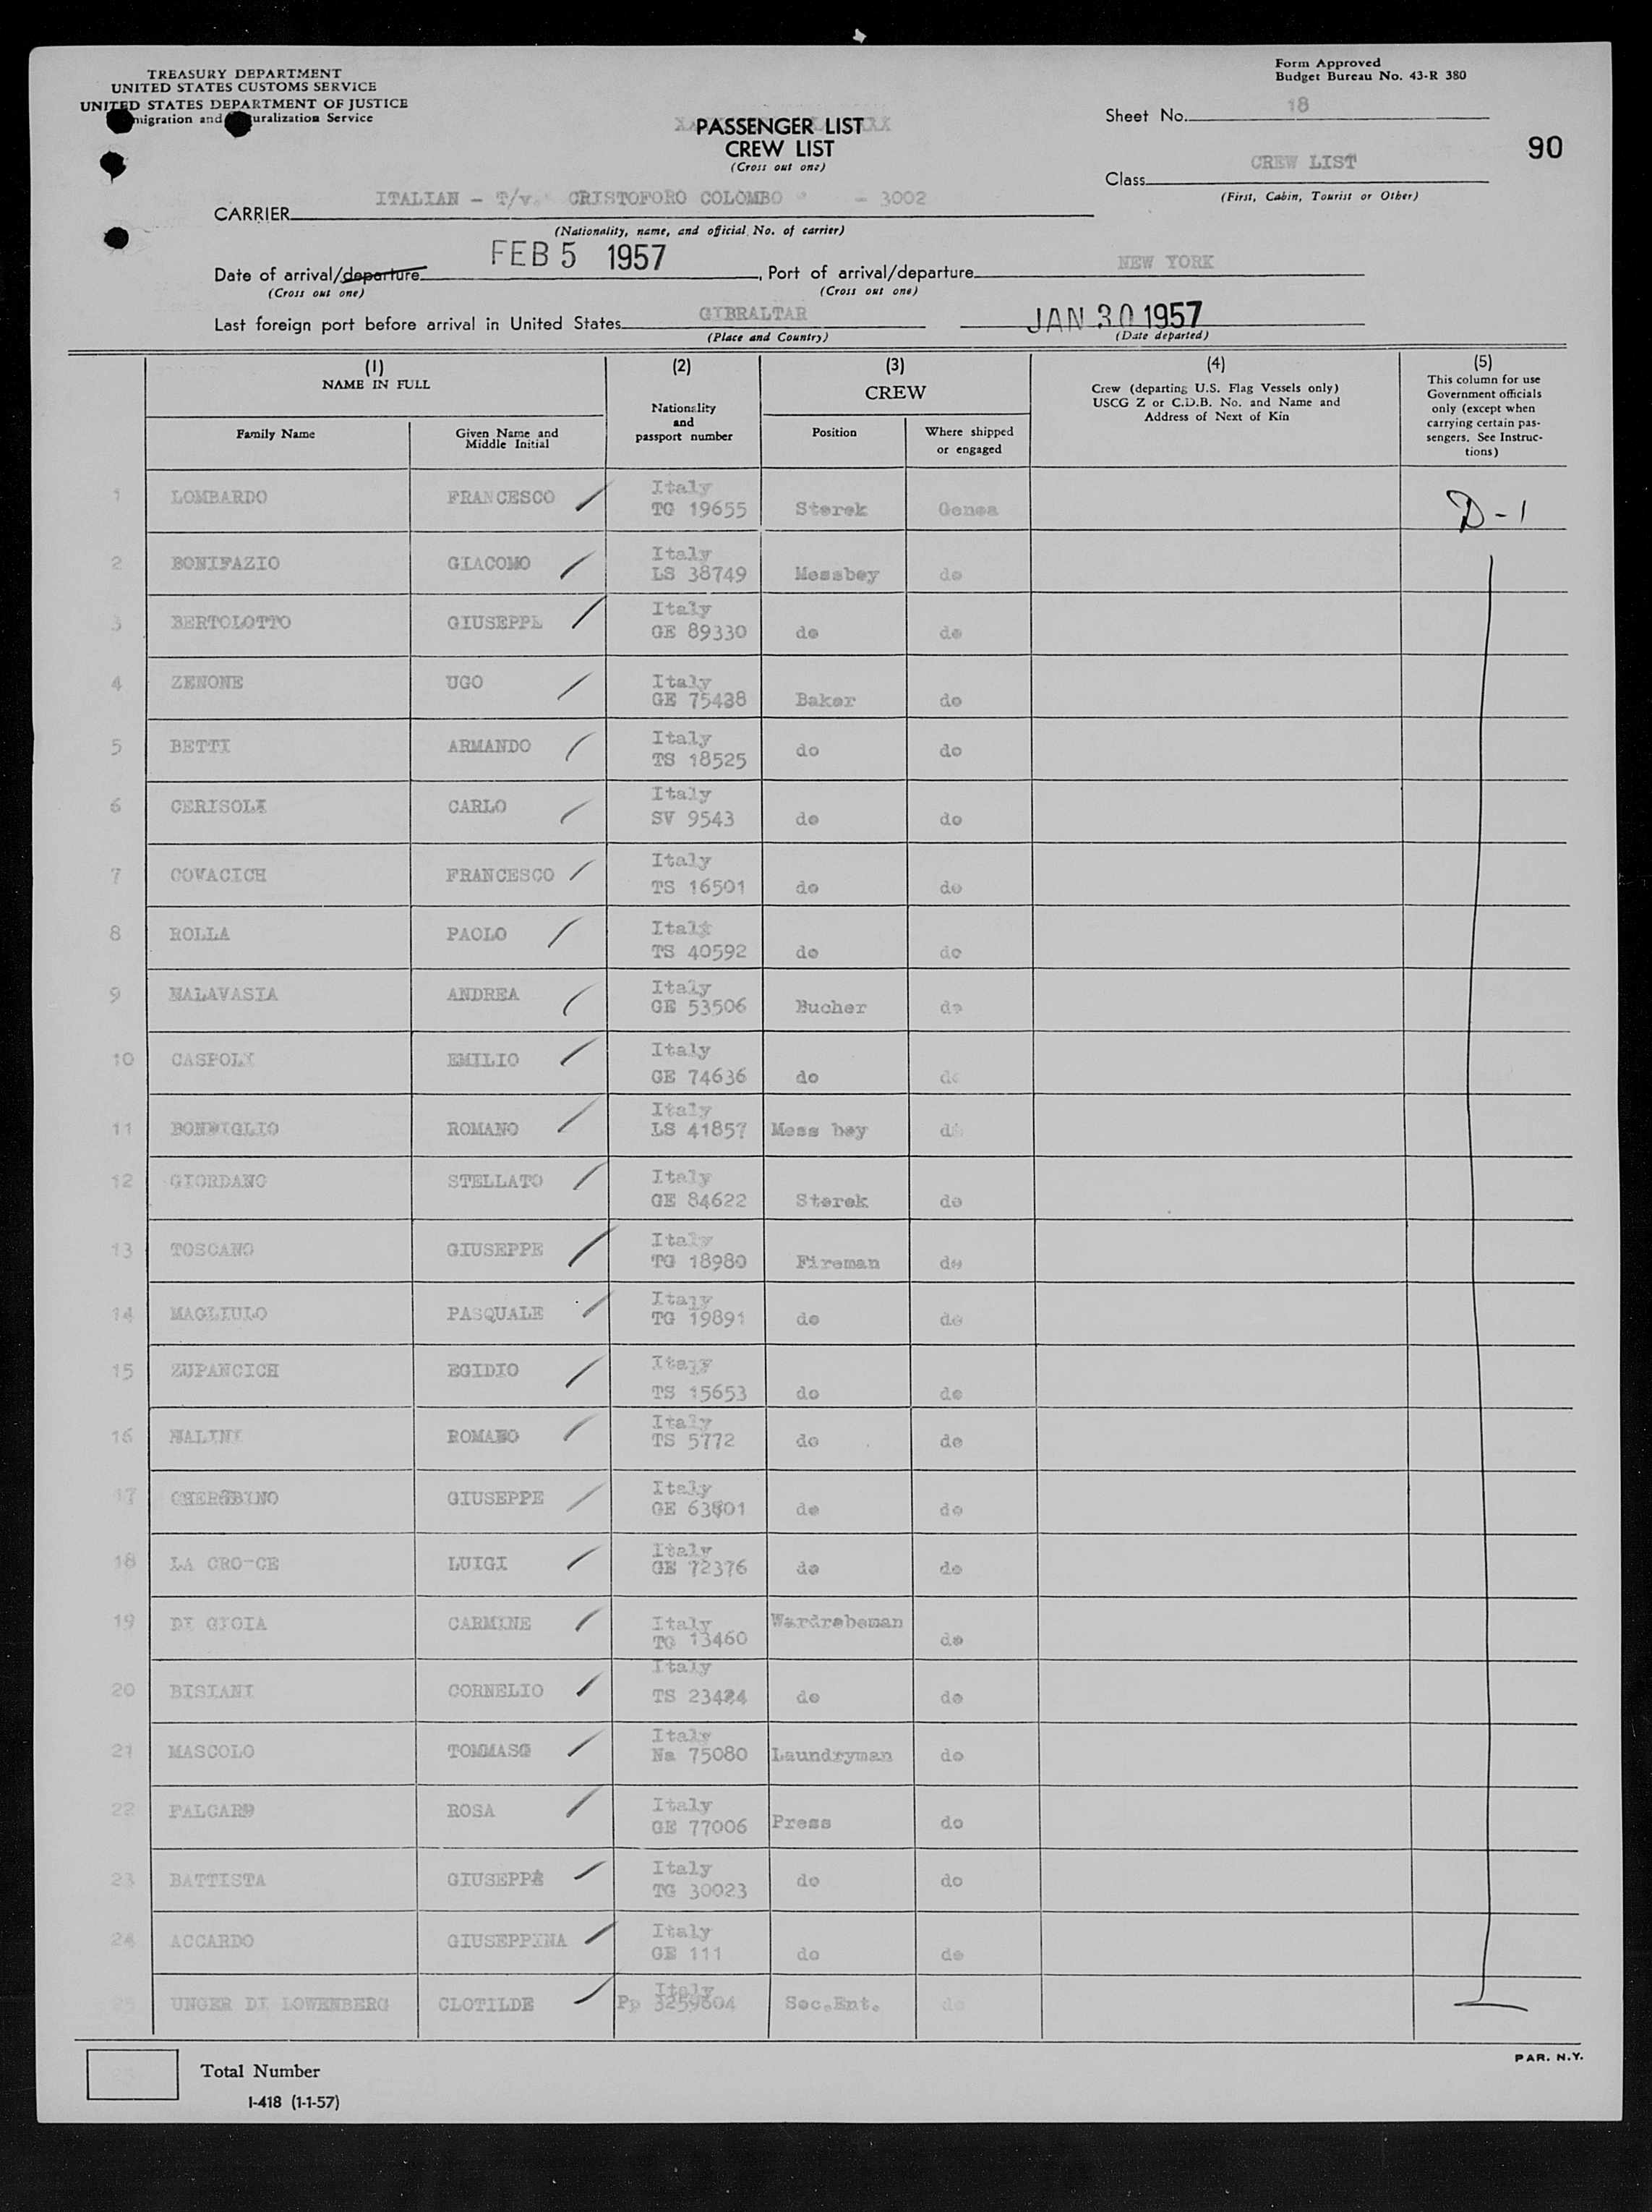 TREASURY DEPARTMENT
UNITED STATES CUSTOMS SERVICE
UNITED STATES DEPARTMENT OF JUSTICE
migration and uralization Service
Form Approved
Budget Bureau No. 43-R 380
Sheet No. 18
PASSENGER LIST
CREW LIST
(Cross out one)
90
Class CREW LIST
(First, Cabin, Tourist or Other)
CARRIER ITALIAN - T/v. CRISTOFORO COLOMBO " - 3002
(Nationality, name, and official No. of carrier)
Date of arrival/departure FEB 5 1957, Port of arrival/departure NEW YORK
(Cross out one) (Cross out one)
Last foreign port before arrival in United States GIBRALTAR JAN 30 1957
(Place and Country) (Date departed)
(1) NAME IN FULL
Family Name
Given Name and Middle Initial
(2) Nationality and passport number
(3) CREW
Position
Where shipped or engaged
(4) Crew (departing U.S. Flag Vessels only) USCG Z or C.D.B. No. and Name and Address of Next of Kin
(5) This column for use Government officials only (except when carrying certain passengers. See Instructions)
1 LOMBARDO FRANCESCO Italy TG 19655 Storek Genoa D-1
2 BONIFAZIO GIACOMO Italy LS 38749 Messboy do
3 BERTOLOTTO GIUSEPPE Italy GE 89330 do do
4 ZENONE UGO Italy GE 75438 Baker do
5 BETTI ARMANDO Italy TS 18525 do do
6 CERISOLA CARLO Italy SV 9543 do do
7 COVACICH FRANCESCO Italy TS 16501 do do
8 ROLLA PAOLO Italy TS 40592 do do
9 MALAVASIA ANDREA Italy GE 53506 Bucher do
10 EMILIO Italy GE 74636 do do
11 ROMANO Italy LS 41857 Mess boy do
12 GIORDANO STELLATO Italy GE 84622 Storek do
13 TOSCANO GIUSEPPE Italy TG 18980 Fireman do
14 MAGLIULO PASQUALE Italy TG 19891 do do
15 ZUPANCICH EGIDIO Italy TS 15653 do do
16 ROMANO Italy TS 5772 do do
17 GIUSEPPE Italy GE do do
18 LA CRO-CE LUIGI Italy GE 72376 do do
19 DI GIOIA CARMINE Italy TG 13460 Wardrobeman do
20 BISIANI CORNELIO Italy TS do do
21 MASCOLO TOMMASO Italy Na 75080 Laundryman do
22 ROSA Italy GE 77006 Press do
23 BATTISTA Italy TG 30023 do do
24 ACCARDO GIUSEPPINA Italy GE 111 do do
25 UNGER DI LOWENBERG CLOTILDE Italy Pp 3259604 Soc.Ent. do
Total Number
I-418 (1-1-57)
PAR. N.Y.